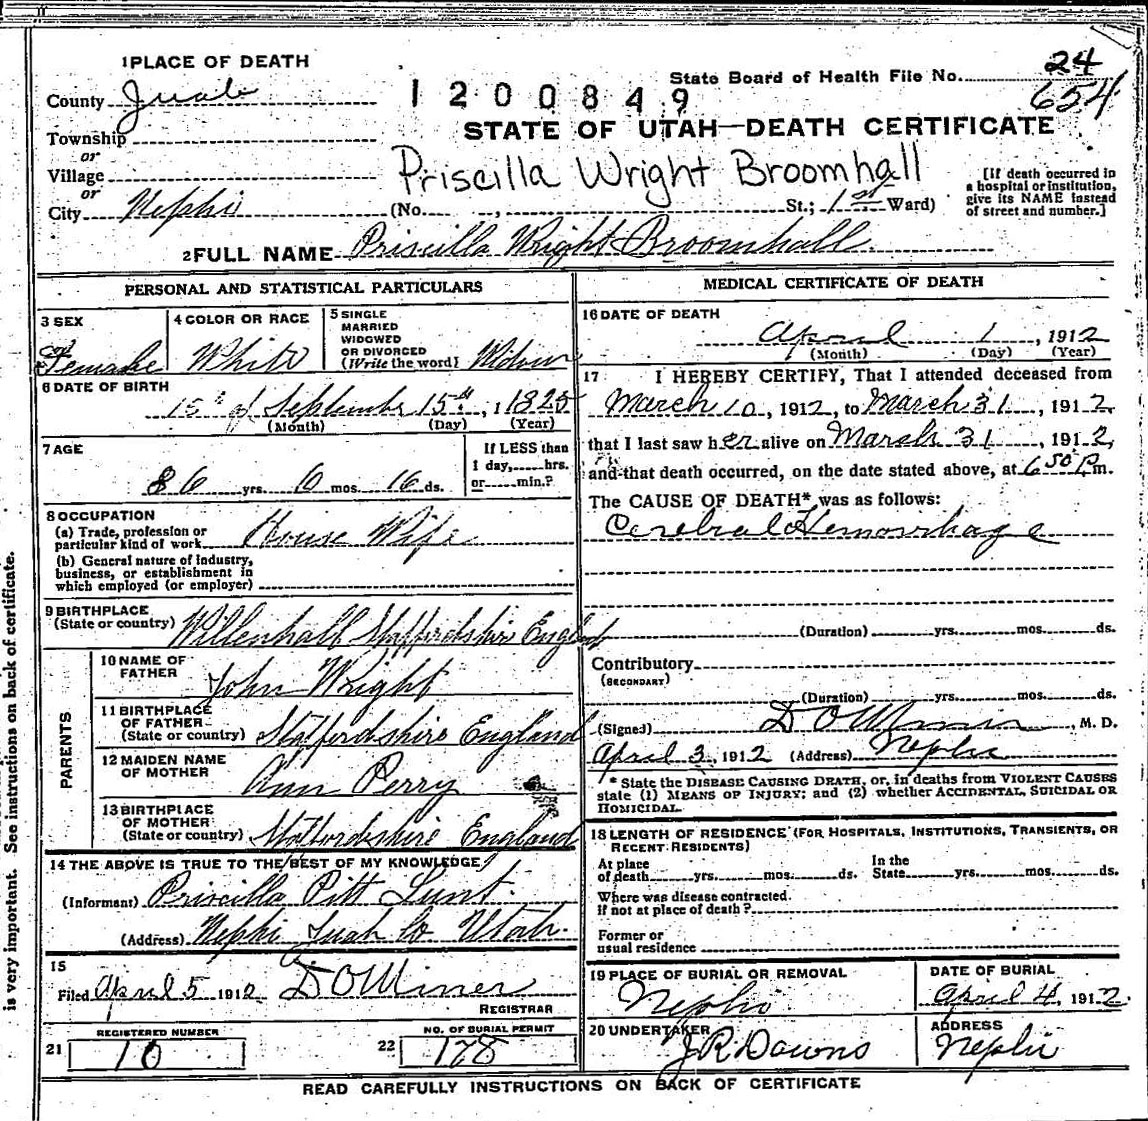 1 PLACE OF DEATH
County Juab
Township
or
Village
or
City Nephi
1200849
State Board of Health File No. 24
654
STATE OF UTAH—DEATH CERTIFICATE
Priscilla Wright Broomhall
(No. , St.; 1st Ward)
[If death occurred in a hospital or institution, give its NAME instead of street and number.]
2 FULL NAME Priscilla Wright Broomhall
PERSONAL AND STATISTICAL PARTICULARS
3 SEX
Female
4 COLOR OR RACE
White
5 SINGLE
MARRIED
WIDOWED
OR DIVORCED
(Write the word) Widow
6 DATE OF BIRTH
15th of September 15th, 1825
(Month) (Day) (Year)
7 AGE
86 yrs. 6 mos. 16 ds.
If LESS than
1 day, hrs.
or min.?
8 OCCUPATION
(a) Trade, profession or
particular kind of work House Wife
(b) General nature of industry,
business, or establishment in
which employed (or employer)
9 BIRTHPLACE
(State or country) Willenhall Staffordshire England
PARENTS
10 NAME OF
FATHER John Wright
11 BIRTHPLACE
OF FATHER
(State or country) Staffordshire England
12 MAIDEN NAME
OF MOTHER Ann Perry
13 BIRTHPLACE
OF MOTHER
(State or country) Staffordshire England
14 THE ABOVE IS TRUE TO THE BEST OF MY KNOWLEDGE
(Informant) Priscilla Pitt Lunt
(Address) Nephi Juab Co Utah.
15
Filed April 5 1912 D O Miner
REGISTRAR
REGISTERED NUMBER
21 10
NO. OF BURIAL PERMIT
22 178
MEDICAL CERTIFICATE OF DEATH
16 DATE OF DEATH
April 1, 1912
(Month) (Day) (Year)
17 I HEREBY CERTIFY, That I attended deceased from
March 10, 1912, to March 31, 1912,
that I last saw her alive on March 31, 1912,
and that death occurred, on the date stated above, at 6 50 P m.
The CAUSE OF DEATH* was as follows:
Cerebral Hemorrhage
(Duration) yrs. mos. ds.
Contributory
(SECONDARY)
(Duration) yrs. mos. ds.
(Signed) D O Miner, M. D.
April 3, 1912 (Address) Nephi
* State the DISEASE CAUSING DEATH, or, in deaths from VIOLENT CAUSES
state (1) MEANS OF INJURY; and (2) whether ACCIDENTAL, SUICIDAL OR
HOMICIDAL.
18 LENGTH OF RESIDENCE (FOR HOSPITALS, INSTITUTIONS, TRANSIENTS, OR
RECENT RESIDENTS)
At place
of death yrs. mos. ds.
In the
State yrs. mos. ds.
Where was disease contracted.
If not at place of death?
Former or
usual residence
19 PLACE OF BURIAL OR REMOVAL
Nephi
DATE OF BURIAL
April 4, 1912.
20 UNDERTAKER
J R Downs
ADDRESS
Nephi
READ CAREFULLY INSTRUCTIONS ON BACK OF CERTIFICATE
is very important. See instructions on back of certificate.